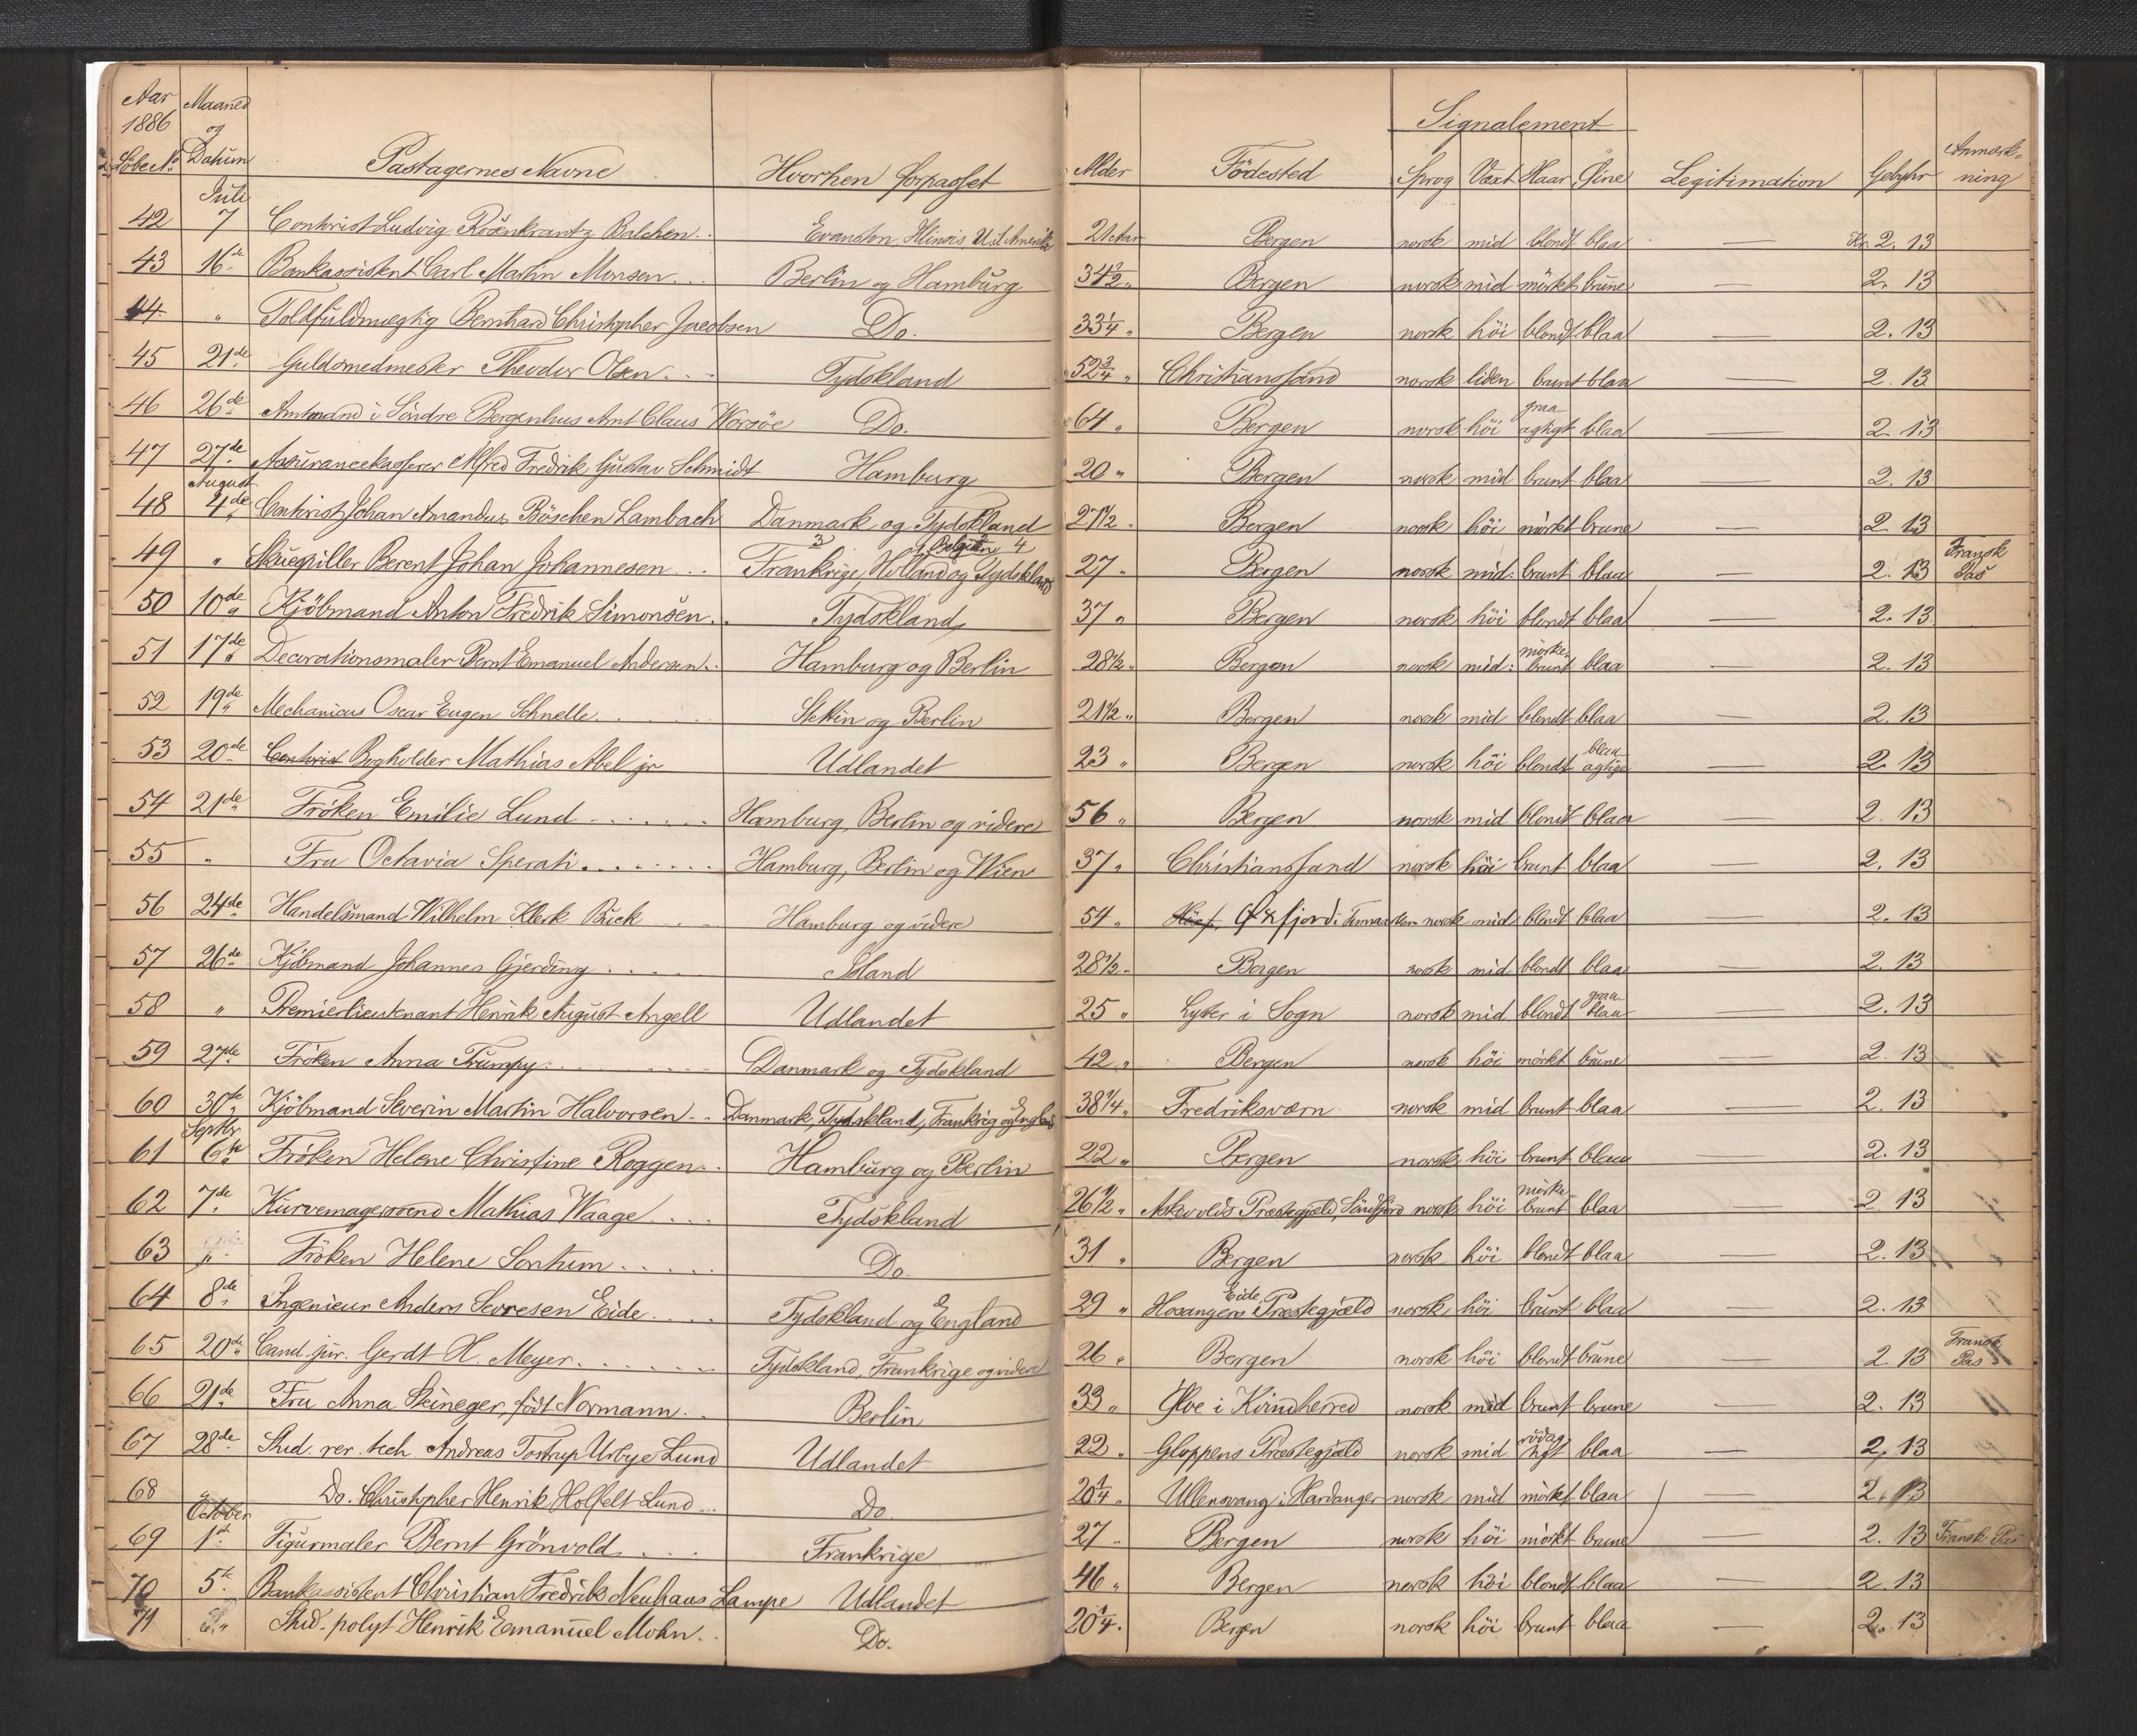 Aar 1886 Løbe No Maaned og Datum Passagernes Navne Hvorhen forpasset Alder Födested Signalement Sprog Vext Haar Öine Legitimation Gebyhr Anmærkning
Juli
42 7 Contorist Ludvig Rosenkrantz Balchen.. Evanston Illinois U.S. Amerika 21 Aar Bergen norsk mid blondt blaa — Kr 2. 13
43 16de Bankassistent Carl Martin Monsen... Berlin og Hamburg 34 1/2 " Bergen norsk mid mörkt brune — 2. 13
44 " Toldfuldmægtig Bernhard Christopher Jacobsen Do. 33 1/4 " Bergen norsk höi blondt blaa — 2. 13
45 21de Guldsmedmester Theodor Olsen... Tydskland 52 3/4 " Christianssand norsk liden brunt blaa — 2. 13
46 26de Amtmand i Söndre Bergenhus Amt Claus Worsöe Do. 64 " Bergen norsk höi graaagtigt blaa — 2. 13
47 27de Assurancekasserer Alfred Fredrik Gustav Schmidt Hamburg 20 " Bergen norsk mid brunt blaa — 2. 13
August
48 4de Contorist Johan Amandus Böschen Lambach Danmark og Tydskland 27 1/2 " Bergen norsk höi mörkt brune — 2 13
49 " Skuespiller Berent Johan Johannesen... Frankrige, Holland, Belgien og Tydskland 27 " Bergen norsk mid. brunt blaa — 2. 13 Fransk Pas
50 10de Kjöbmand Anton Fredrik Simonsen.. Tydskland 37 " Bergen norsk höi blondt blaa — 2. 13
51 17de Decorationsmaler Bernt Emanuel Andersen.. Hamburg og Berlin 28 1/2 " Bergen norsk mid: mörkebrunt blaa — 2. 13
52 19de Mechanicus Oscar Eugen Schnelle.... Stettin og Berlin 21 1/2 " Bergen norsk mid blondt blaa — 2. 13
53 20de Contorist Bogholder Mathias Abel jr Udlandet 23 " Bergen norsk höi blondt blaaagtige — 2. 13
54 21de Fröken Emilie Lund........ Hamburg, Berlin og videre 56 " Bergen norsk mid blondt blaa — 2. 13
55 " Fru Octavia Sperati........ Hamburg, Berlin og Wien 37 " Christianssand norsk höi brunt blaa — 2. 13
56 24de Handelsmand Wilhelm Klerk Buck ... Hamburg og videre 54 " Öxfjord i Finmarken norsk mid blondt blaa — 2. 13
57 26de Kjöbmand Johannes Gjerding..... Island 28 1/2 " Bergen norsk mid blondt blaa — 2. 13
58 " Premierlieutenant Henrik August Angell Udlandet 25 " Lyster i Sogn norsk mid blondt graablaa — 2. 13
59 27de Fröken Anna Trumpy...... Danmark og Tydskland 42 " Bergen norsk höi mörkt brune — 2. 13
60 30te Kjöbmand Severin Martin Halvorsen.. Danmark, Tydskland, Frankrig og England 38 1/4 " Fredriksværn norsk mid brunt blaa — 2. 13
Septbr
61 6te Fröken Helene Christine Roggen.. Hamburg og Berlin 22 " Bergen norsk höi brunt blaa — 2. 13
62 7de Kurvemagersvend Mathias Waage.... Tydskland 26 1/2 " Askvolds Præstegjæld, Söndfjord norsk höi mörkebrunt blaa — 2. 13
63 " Fröken Helene Sontum..... Do. 31 " Bergen norsk höi blondt blaa — 2. 13
64 8de Ingenieur Anders Sevresen Eide.... Tydskland og England 29 " Eide, Hosangers Præstegjæld norsk höi brunt blaa — 2. 13
65 20de Cand. jur. Gerdt H. Meyer....... Tydskland, Frankrige og videre 26 " Bergen norsk höi blondt brune — 2. 13 Fransk Pas
66 21de Fru Anna Steineger, födt Normann.. Berlin 33 " Ölve i Kvindherred norsk mid brunt brune — 2. 13
67 28de Stud. rer. tech. Andreas Tostrup Urbye Lund Udlandet 22 " Gloppens Præstegjæld norsk mid rödagtigt blaa — 2. 13
68 " Do. Christopher Henrik Holfelt Lund... Do. 20 1/4 " Ullensvang i Hardanger norsk mid mörkt blaa — 2. 13
October
69 1ste Figurmaler Bernt Grönvold.... Frankrige 27 " Bergen norsk höi mörkt brune — 2. 13 Fransk Pas
70 5te Bankassistent Christian Fredrik Neuhaus Lampe Udlandet 46 " Bergen norsk höi blondt blaa — 2. 13
71 Stud. polyt Henrik Emanuel Mohn.. Do. 20 1/4 " Bergen norsk höi brunt blaa — 2. 13